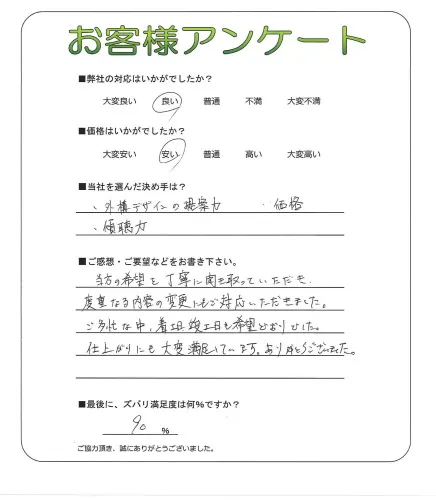 お客様アンケート
■弊社の対応はいかがでしたか?
大変良い 良い 普通 不満 大変不満
■価格はいかがでしたか?
大変安い 安い 普通 高い 大変高い
■当社を選んだ決め手は?
、外構デザインの提案力 、価格
、傾聴力
■ご感想・ご要望などをお書き下さい。
当方の希望を丁寧に聞き取っていただき、
度重なる内容の変更にもご対応いただきました。
ご多忙な中、着工日、竣工日も希望どおりでした。
仕上がりにも大変満足しています。ありがとうございました。
■最後に、ズバリ満足度は何%ですか?
90 %
ご協力頂き、誠にありがとうございました。